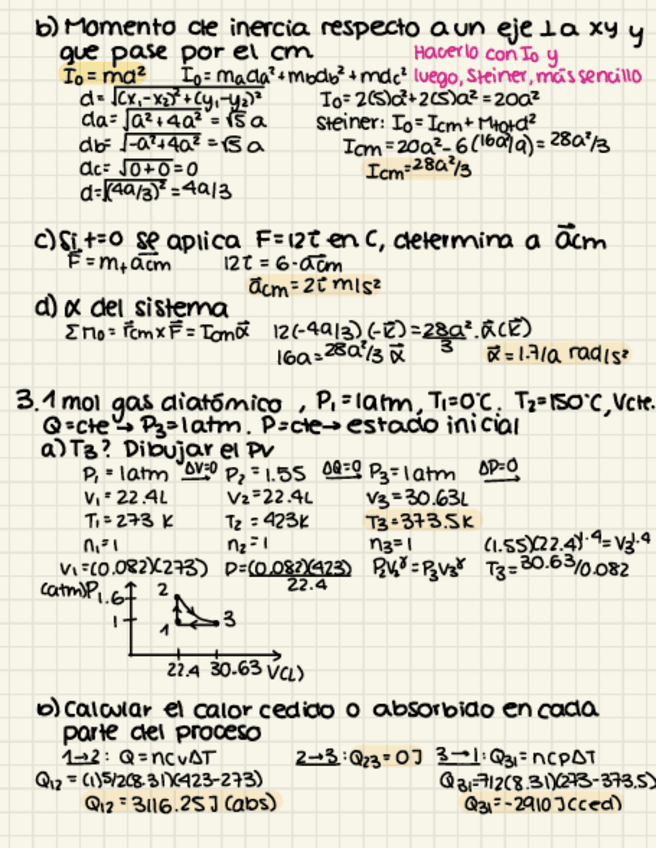 b) Momento de inercia respecto a un eje ⊥ a xy y
que pase por el cm
Hacerlo con I₀ y
luego, Steiner, más sencillo
I₀ = md²   I₀ = mₐdₐ² + mbdb² + mdc²
d = √(x₁-x₂)² + (y₁-y₂)²
da = √a²+4a² = √5 a
db = √-a²+4a² = √5 a
dc = √0+0 = 0
d = √(4a/3)² = 4a/3
I₀ = 2(5)a² + 2(5)a² = 20a²
Steiner: I₀ = Icm + Mtotd²
Icm = 20a² - 6(16a²/9) = 28a²/3
Icm = 28a²/3
c) Si t=0 se aplica F=12i en C, determina a a⃗cm
F⃗ = mₜ a⃗cm   12i = 6·a⃗cm
a⃗cm = 2i m/s²
d) α del sistema
ΣM₀ = r⃗cm x F⃗ = Icmα⃗   12(-4a/3)(-k⃗) = 28a²/3 · α⃗(k⃗)
16a = 28a²/3 α⃗   α⃗ = 1.71/a rad/s²
3. 1 mol gas diatómico, P₁ = 1atm, T₁=0°C. T₂=150°C, Vcte.
Q=cte → P₃=1atm. P=cte → estado inicial
a) T₃? Dibujar el PV
P₁ = 1atm   ΔV=0 →   P₂ = 1.55   ΔQ=0 →   P₃ = 1atm   ΔP=0 →
V₁ = 22.4L   V₂ = 22.4L   V₃ = 30.63L
T₁ = 273 K   T₂ = 423K   T₃ = 373.5K
n₁ = 1   n₂ = 1   n₃ = 1   (1.55)(22.4)^1.4 = V₃^1.4
V₁ = (0.082)(273)   P = (0.082)(423)/22.4   P₂V₂^γ = P₃V₃^γ   T₃ = 30.63/0.082
(atm)P
1.6
1
2
1
3
22.4   30.63   V(L)
b) Calcular el calor cedido o absorbido en cada
parte del proceso
1→2: Q = ncvΔT   2→3: Q₂₃ = 0J   3→1: Q₃₁ = ncpΔT
Q₁₂ = (1)5/2(8.31)(423-273)   Q₃₁ = 7/2(8.31)(273-373.5)
Q₁₂ = 3116.25J (abs)   Q₃₁ = -2910J (ced)